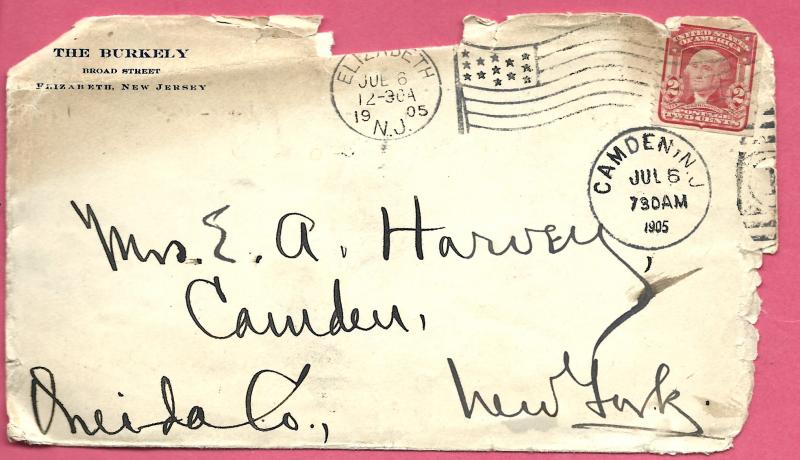 THE BURKELY
BROAD STREET
ELIZABETH, NEW JERSEY
ELIZABETH
JUL 6
12-30A
19 05
N.J.
UNITED STATES
OF AMERICA
2 2
TWO CENTS
CAMDEN, N.J
JUL 6
730AM
1905
Mrs. E. A. Harvey,
Camden,
Oneida Co., New York.